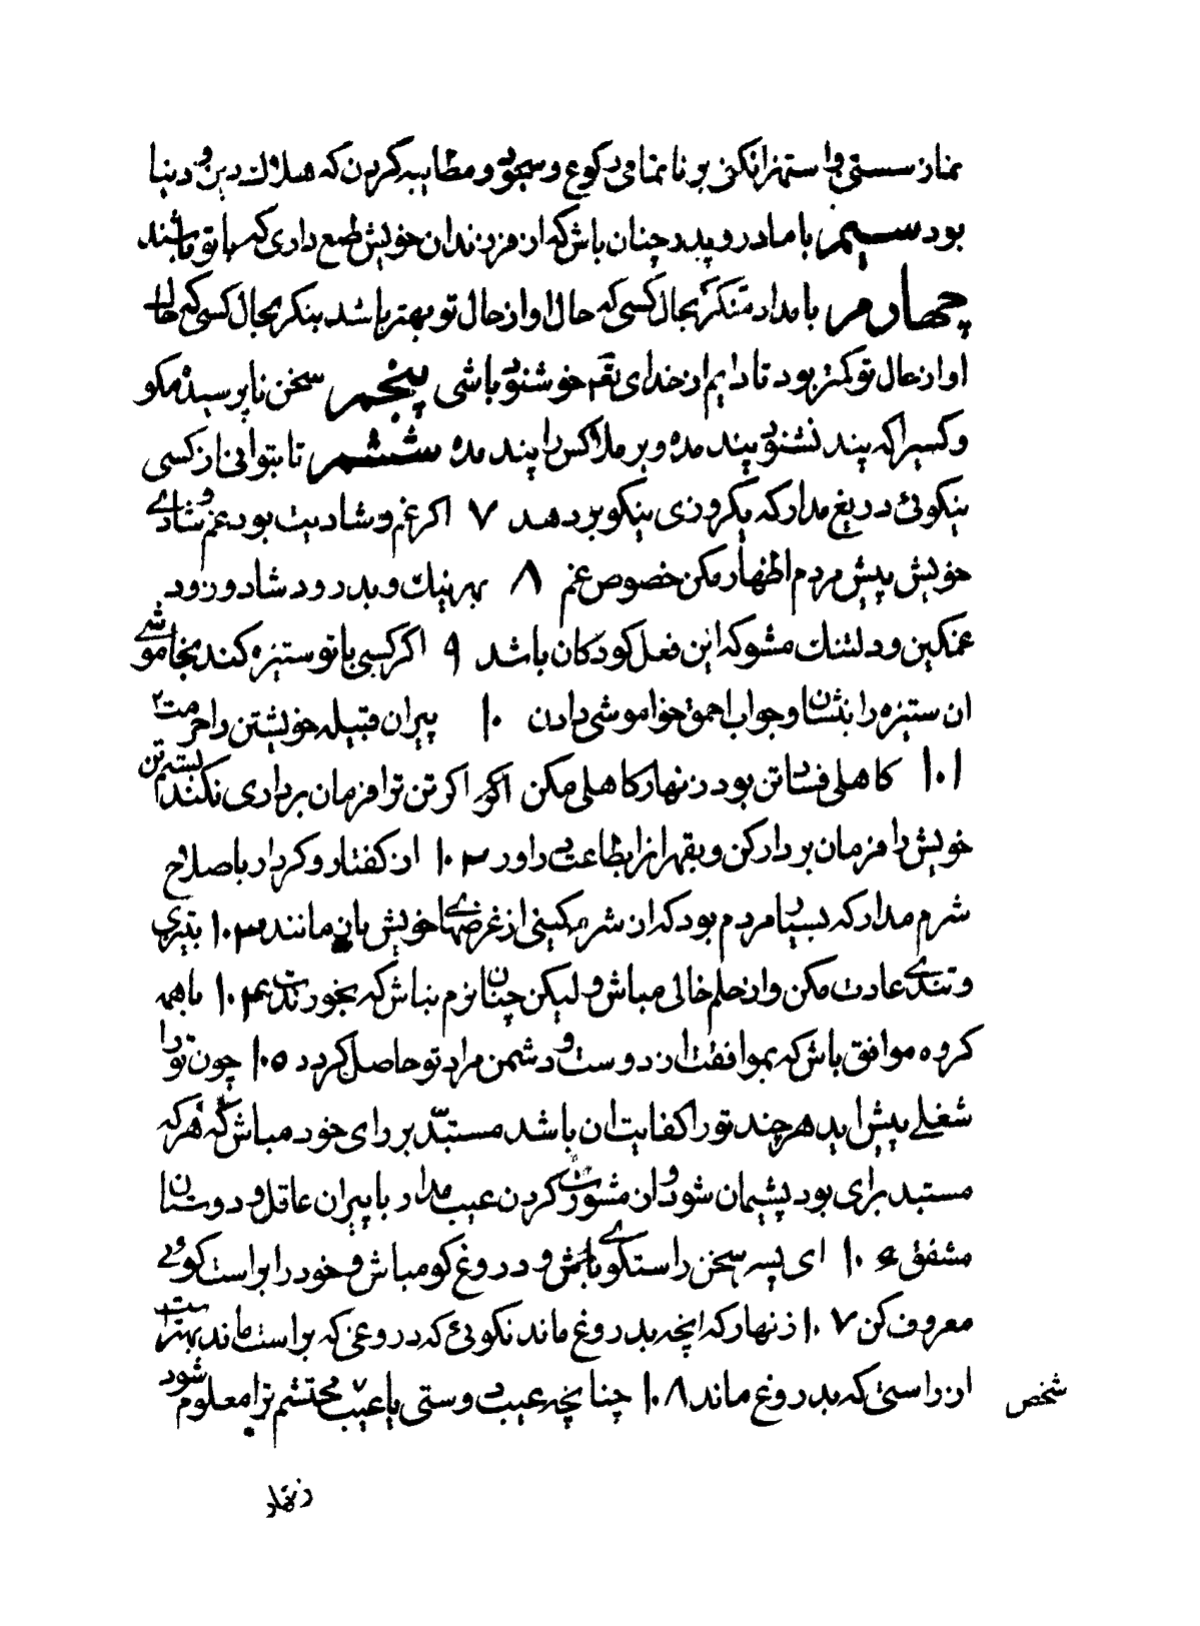 نماز سستی و استهزا نکنی بر ناتمامی رکوع و سجود و مطایبه کردن که هلاک دین و دنیا
بود سیم با مادر و پدر چنان باش که از فرزندان خویش طمع داری که با تو باشند
چهارم بامداد منکر بحال کسی که حال او از حال تو بهتر باشد بنکر بحال کسی که حال
او از حال تو کمتر بود تا دایم از خدای تعم خوشنود باشی پنجم سخن ناپرسیده مکو
و کسیرا که پند نشنود پند مده و بر ملا کس را پند مده ششم تا بتوانی از کسی
نیکوئی دریغ مدار که یکروزی نیکو بر دهد ۷ اکر غم و شادیت بود غم و شادی
خویش پیش مردم اظهار مکن خصوص غم ۸ بهر نیک و بد زود شاد و زود
غمکین و دلتنک مشو که این فعل کودکان باشد ۹ اکر کسی با تو ستیزه کند بخاموشی
ان ستیزه را بنشان و جواب احمق خواموشی دادن ۱۰ پیران قبیله خویشتن را حرمت
۱۰۱ کاهلی فساد تن بود زنهار کاهلی مکن اکر تن ترا فرمان برداری نکند بستم تن
خویش را فرمان بردار کن و بقهر انرا بطاعت در اور ۱۰۲ از کفتار و کردار باصلاح
شرم مدار که بسیار مردم بود که از شرمکینی از غرضهای خویش باز مانند ۱۰۳ بتیزی
و تندی عادت مکن و از حلم خالی مباش و لیکن چنان نرم مباش که بخورندت ۱۰۴ با همه
کروه موافق باش که بموافقت از دوست و دشمن مراد تو حاصل کردد ۱۰۵ چون تو را
شغلی پیش اید هر چند تو را کفایت ان باشد مستبد بر رای خود مباش که هر که
مستبد برای بود پشیمان شود و از مشورت کردن عیب مدار با پیران عاقل و دوستان
مشفق ۱۰۶ ای پسر سخن راستکوی باش و دروغ کو مباش و خود را براست کوئی
معروف کن ۱۰۷ زنهار که انچه بدروغ ماند نکوئی که دروغی که براست ماند بهتر است
از راستی که بدروغ ماند ۱۰۸ چنانچه عیب وستی یا عیب محتشم ترا معلوم شود
شخص
زنهار